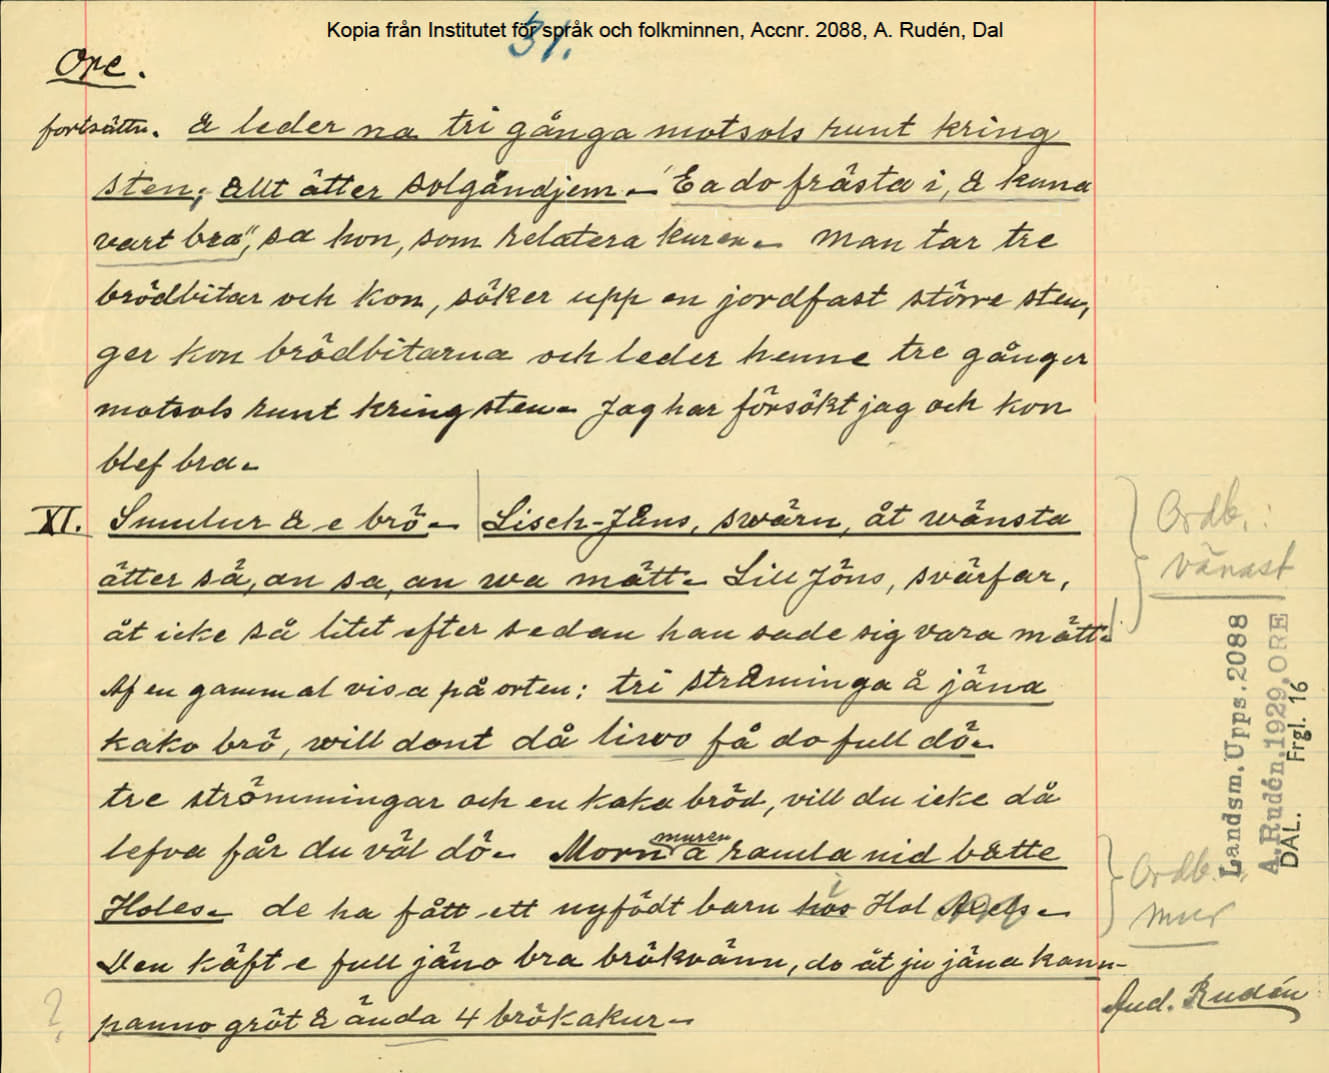 Kopia från Institutet för språk och folkminnen, Accnr. 2088, A. Rudén, Dal
31.
Ore.
fortsättn. & leder na tri gånga motsols runt kring
sten; allt ätter solgåndjem. "Ea do frästa i, & kuna
vart bra", sa hon, som relatera kuren. Man tar tre
brödbitar och kon, söker upp en jordfast större sten,
ger kon brödbitarna och leder henne tre gånger
motsols runt kring sten. Jag har försökt jag och kon
blef bra.
XI. Smulur & e brö. Lisch-Jåns, swärn, åt wänsta
ätter så, an sa, an wa mätt. Lill Jöns, svärfar,
åt icke så litet efter sedan han sade sig vara mätt.
Af en gammal visa på orten: tri strøminga å jäna
kako brö, will dont då liwo få do full dö.
tre strömmingar och en kaka bröd, vill du icke då
lefva får du väl dö. Morn muren a ramla nid batte
Holes. de ha fått ett nyfödt barn hos Hol
Den käft e full jäno bra brökvänn, do åt ju jäna kann-
panno gröt & ända 4 brökakur.
?
Ordb.:
vänast
Ordb.
mur
Aud. Rudén
Landsm. Upps. 2088
A. Rudén, 1929, ORE
DAL. Frgl. 16